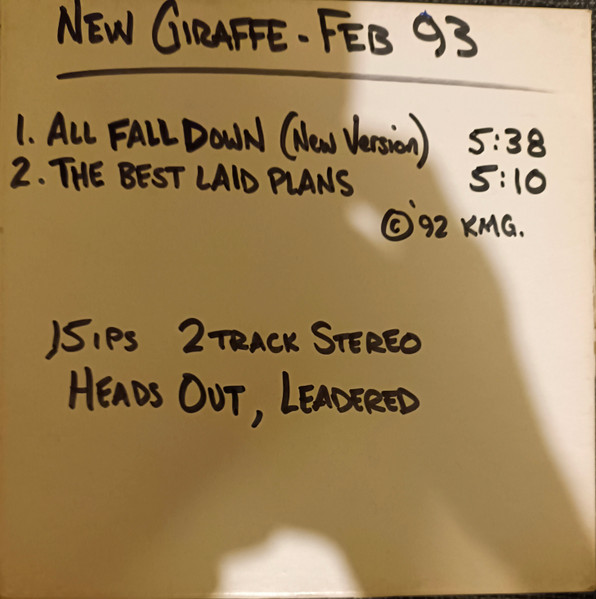 NEW GIRAFFE - FEB 93
1. ALL FALL DOWN (New Version) 5:38
2. THE BEST LAID PLANS 5:10
© '92 KMG.
15 IPS 2 TRACK STEREO
HEADS OUT, LEADERED